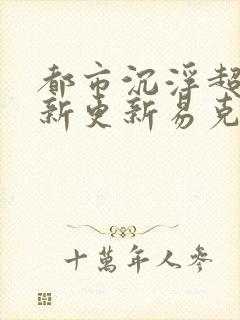 都市沉浮超
新更新易克
十萬年人參